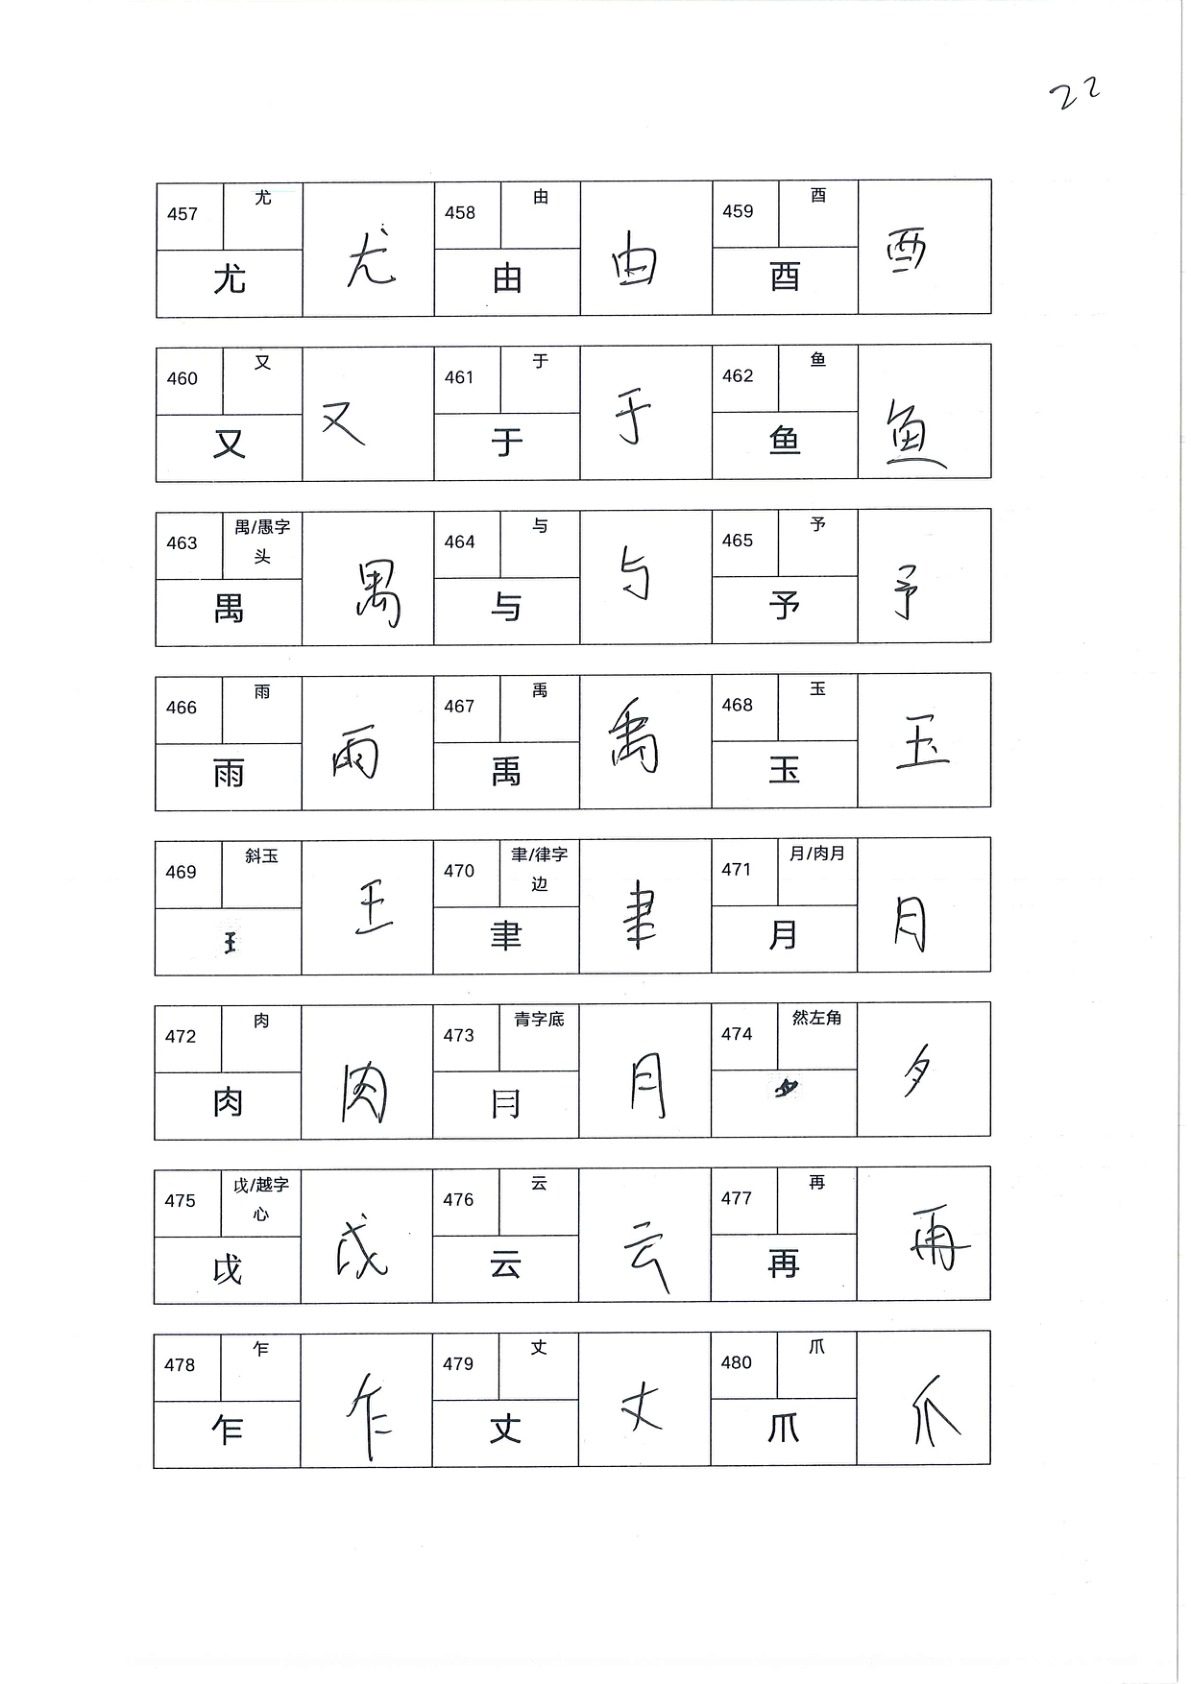 22
457 尤 尤 尤 458 由 由 由 459 酉 酉 酉
460 又 又 又 461 于 于 于 462 鱼 鱼 鱼
463 禺/愚字头 禺 禺 464 与 与 与 465 予 予 予
466 雨 雨 雨 467 禹 禹 禹 468 玉 玉 玉
469 斜玉 𤣩 王 470 聿/律字边 聿 聿 471 月/肉月 月 月
472 肉 肉 肉 473 青字底 ⺝ 月 474 然左角 夕
475 戉/越字心 戉 戉 476 云 云 云 477 再 再 再
478 乍 乍 乍 479 丈 丈 丈 480 爪 爪 爪